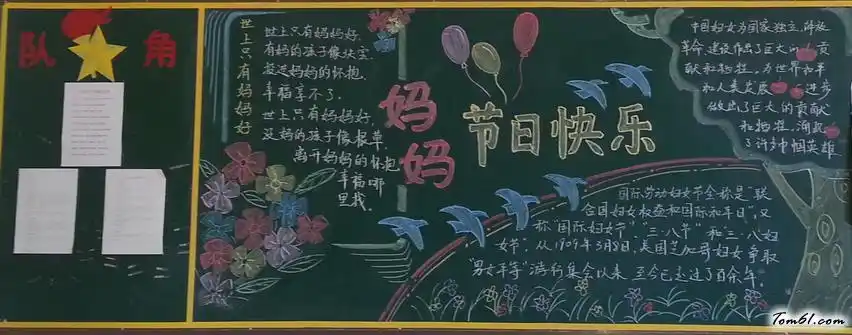 队角
世上只有妈妈好
世上只有妈妈好,
有妈的孩子像块宝.
投进妈妈的怀抱,
幸福享不了.
世上只有妈妈好,
没妈的孩子像根草.
离开妈妈的怀抱
幸福哪
里找.
妈妈
节日快乐
中国妇女为国家独立,解放
革命,建设作出了巨大的贡
献和牺牲,为世界和平
和人类发展进步
做出了巨大的贡献
和牺牲,涌现
了许多巾帼英雄
国际劳动妇女节全称是"联
合国妇女权益和国际和平日",又
称"国际妇女节""三·八节"和三·八妇
女节.从1909年3月8日,美国芝加哥妇女争取
"男女平等"游行集会以来,至今已走过了百余年.
Tom61.com